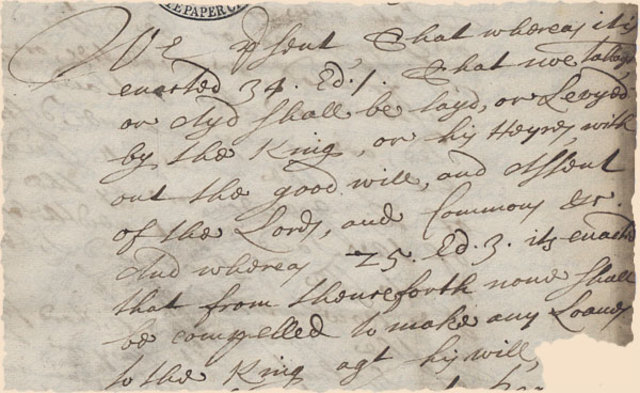 E PAPER
We psent, That whereas its
enacted 34. Ed. 1. That noe tallage
or Ayd shall be layd, or Levyed
by the King, or his Heyres with
out the good will, and Assent
of the Lords, and Commons &c.
And whereas 25. Ed. 3. its enacted
that from thenceforth none shall
be compelled to make any Loanes
to the King agt his will,